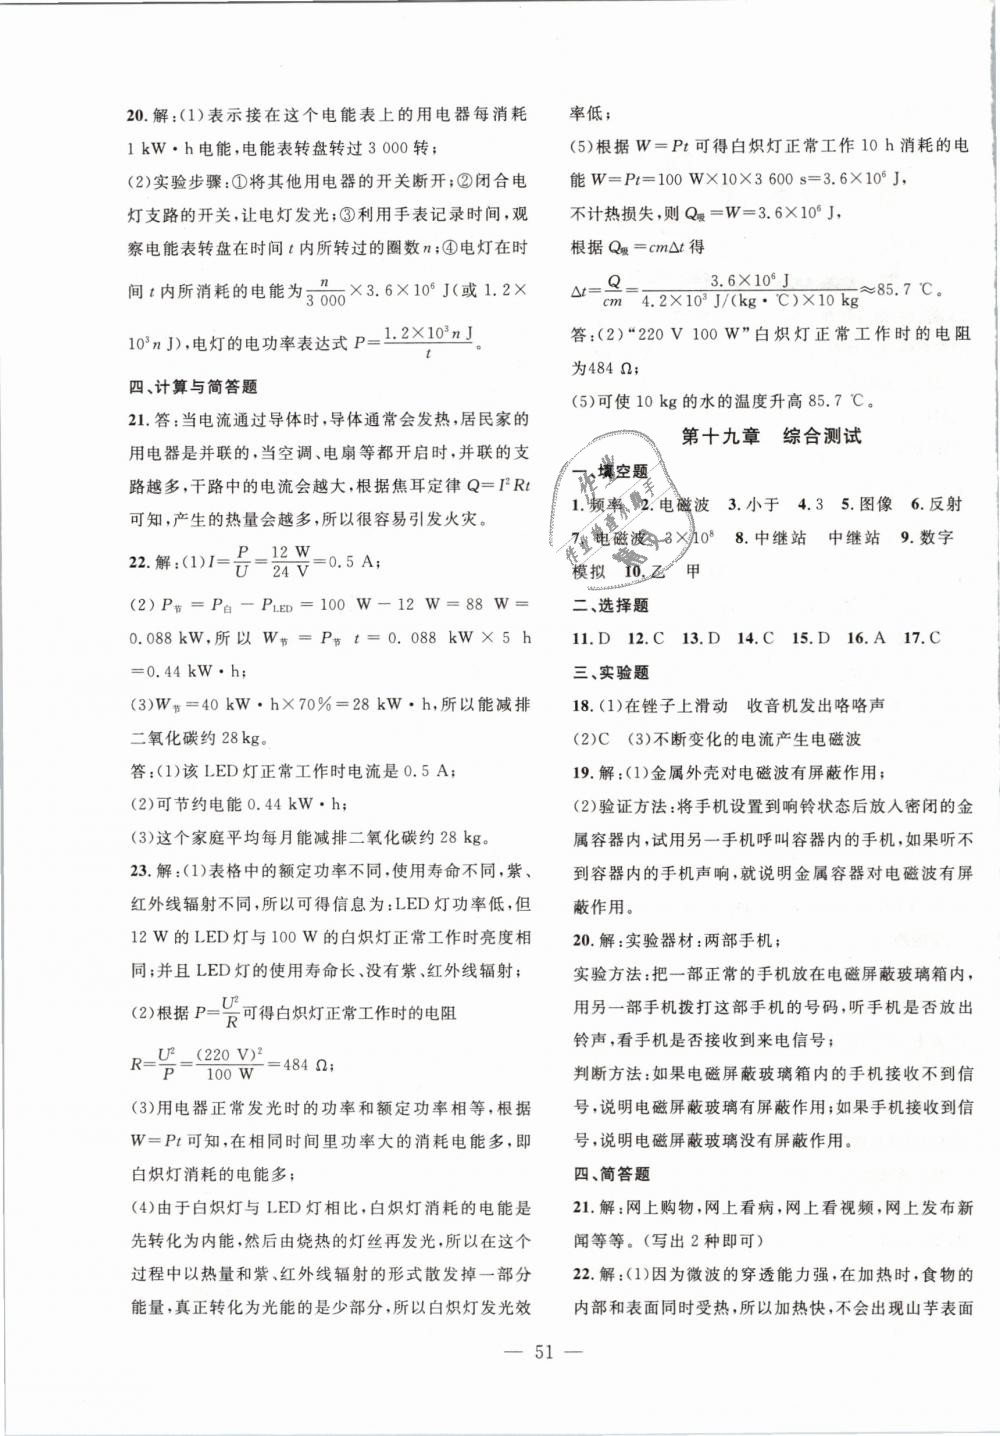 20.解:(1)表示接在这个电能表上的用电器每消耗
1 kW·h电能,电能表转盘转过 3 000 转;
(2)实验步骤:①将其他用电器的开关断开;②闭合电
灯支路的开关,让电灯发光;③利用手表记录时间,观
察电能表转盘在时间 t 内所转过的圈数 n;④电灯在时
间 t 内所消耗的电能为n/3 000×3.6×10⁶ J(或 1.2×
10³n J),电灯的电功率表达式 P=1.2×10³n J/t。
四、计算与简答题
21.答:当电流通过导体时,导体通常会发热,居民家的
用电器是并联的,当空调、电扇等都开启时,并联的支
路越多,干路中的电流会越大,根据焦耳定律 Q=I²Rt
可知,产生的热量会越多,所以很容易引发火灾。
22.解:(1)I=P/U=12 W/24 V=0.5 A;
(2) P节 = P白 - P_LED = 100 W-12 W=88 W=
0.088 kW,所以 W节 = P节 t = 0.088 kW×5 h
=0.44 kW·h;
(3)W节=40 kW·h×70%=28 kW·h,所以能减排
二氧化碳约 28kg。
答:(1)该 LED灯正常工作时电流是 0.5 A;
(2)可节约电能 0.44 kW·h;
(3)这个家庭平均每月能减排二氧化碳约 28 kg。
23.解:(1)表格中的额定功率不同,使用寿命不同,紫、
红外线辐射不同,所以可得信息为:LED灯功率低,但
12 W 的 LED灯与 100 W 的白炽灯正常工作时亮度相
同;并且 LED 灯的使用寿命长、没有紫、红外线辐射;
(2)根据 P=U²/R可得白炽灯正常工作时的电阻
R=U²/P=(220 V)²/100 W=484 Ω;
(3)用电器正常发光时的功率和额定功率相等,根据
W=Pt 可知,在相同时间里功率大的消耗电能多,即
白炽灯消耗的电能多;
(4)由于白炽灯与 LED 灯相比,白炽灯消耗的电能是
先转化为内能,然后由烧热的灯丝再发光,所以在这个
过程中以热量和紫、红外线辐射的形式散发掉一部分
能量,真正转化为光能的是少部分,所以白炽灯发光效
率低;
(5)根据 W=Pt 可得白炽灯正常工作 10 h 消耗的电
能 W=Pt=100 W×10×3 600 s=3.6×10⁶ J,
不计热损失,则 Q吸=W=3.6×10⁶ J,
根据 Q吸=cmΔt 得
Δt=Q/cm=3.6×10⁶ J/4.2×10³ J/(kg·℃)×10 kg≈85.7 ℃。
答:(2)“220 V 100 W”白炽灯正常工作时的电阻
为484 Ω;
(5)可使 10 kg 的水的温度升高 85.7 ℃。
第十九章 综合测试
一、填空题
1.频率 2.电磁波 3.小于 4.3 5.图像 6.反射
7.电磁波 3×10⁸ 8.中继站 中继站 9.数字
模拟 10.乙 甲
二、选择题
11.D 12.C 13.D 14.C 15.D 16.A 17.C
三、实验题
18.(1)在锉子上滑动 收音机发出咯咯声
(2)C (3)不断变化的电流产生电磁波
19.解:(1)金属外壳对电磁波有屏蔽作用;
(2)验证方法:将手机设置到响铃状态后放入密闭的金
属容器内,试用另一手机呼叫容器内的手机,如果听不
到容器内的手机声响,就说明金属容器对电磁波有屏
蔽作用。
20.解:实验器材:两部手机;
实验方法:把一部正常的手机放在电磁屏蔽玻璃箱内,
用另一部手机拨打这部手机的号码,听手机是否放出
铃声,看手机是否接收到来电信号;
判断方法:如果电磁屏蔽玻璃箱内的手机接收不到信
号,说明电磁屏蔽玻璃有屏蔽作用;如果手机接收到信
号,说明电磁屏蔽玻璃没有屏蔽作用。
四、简答题
21.解:网上购物,网上看病,网上看视频,网上发布新
闻等等。(写出 2 种即可)
22.解:(1)因为微波的穿透能力强,在加热时,食物的
内部和表面同时受热,所以加热快,不会出现山芋表面
— 51 —
作业
作业检查小助手